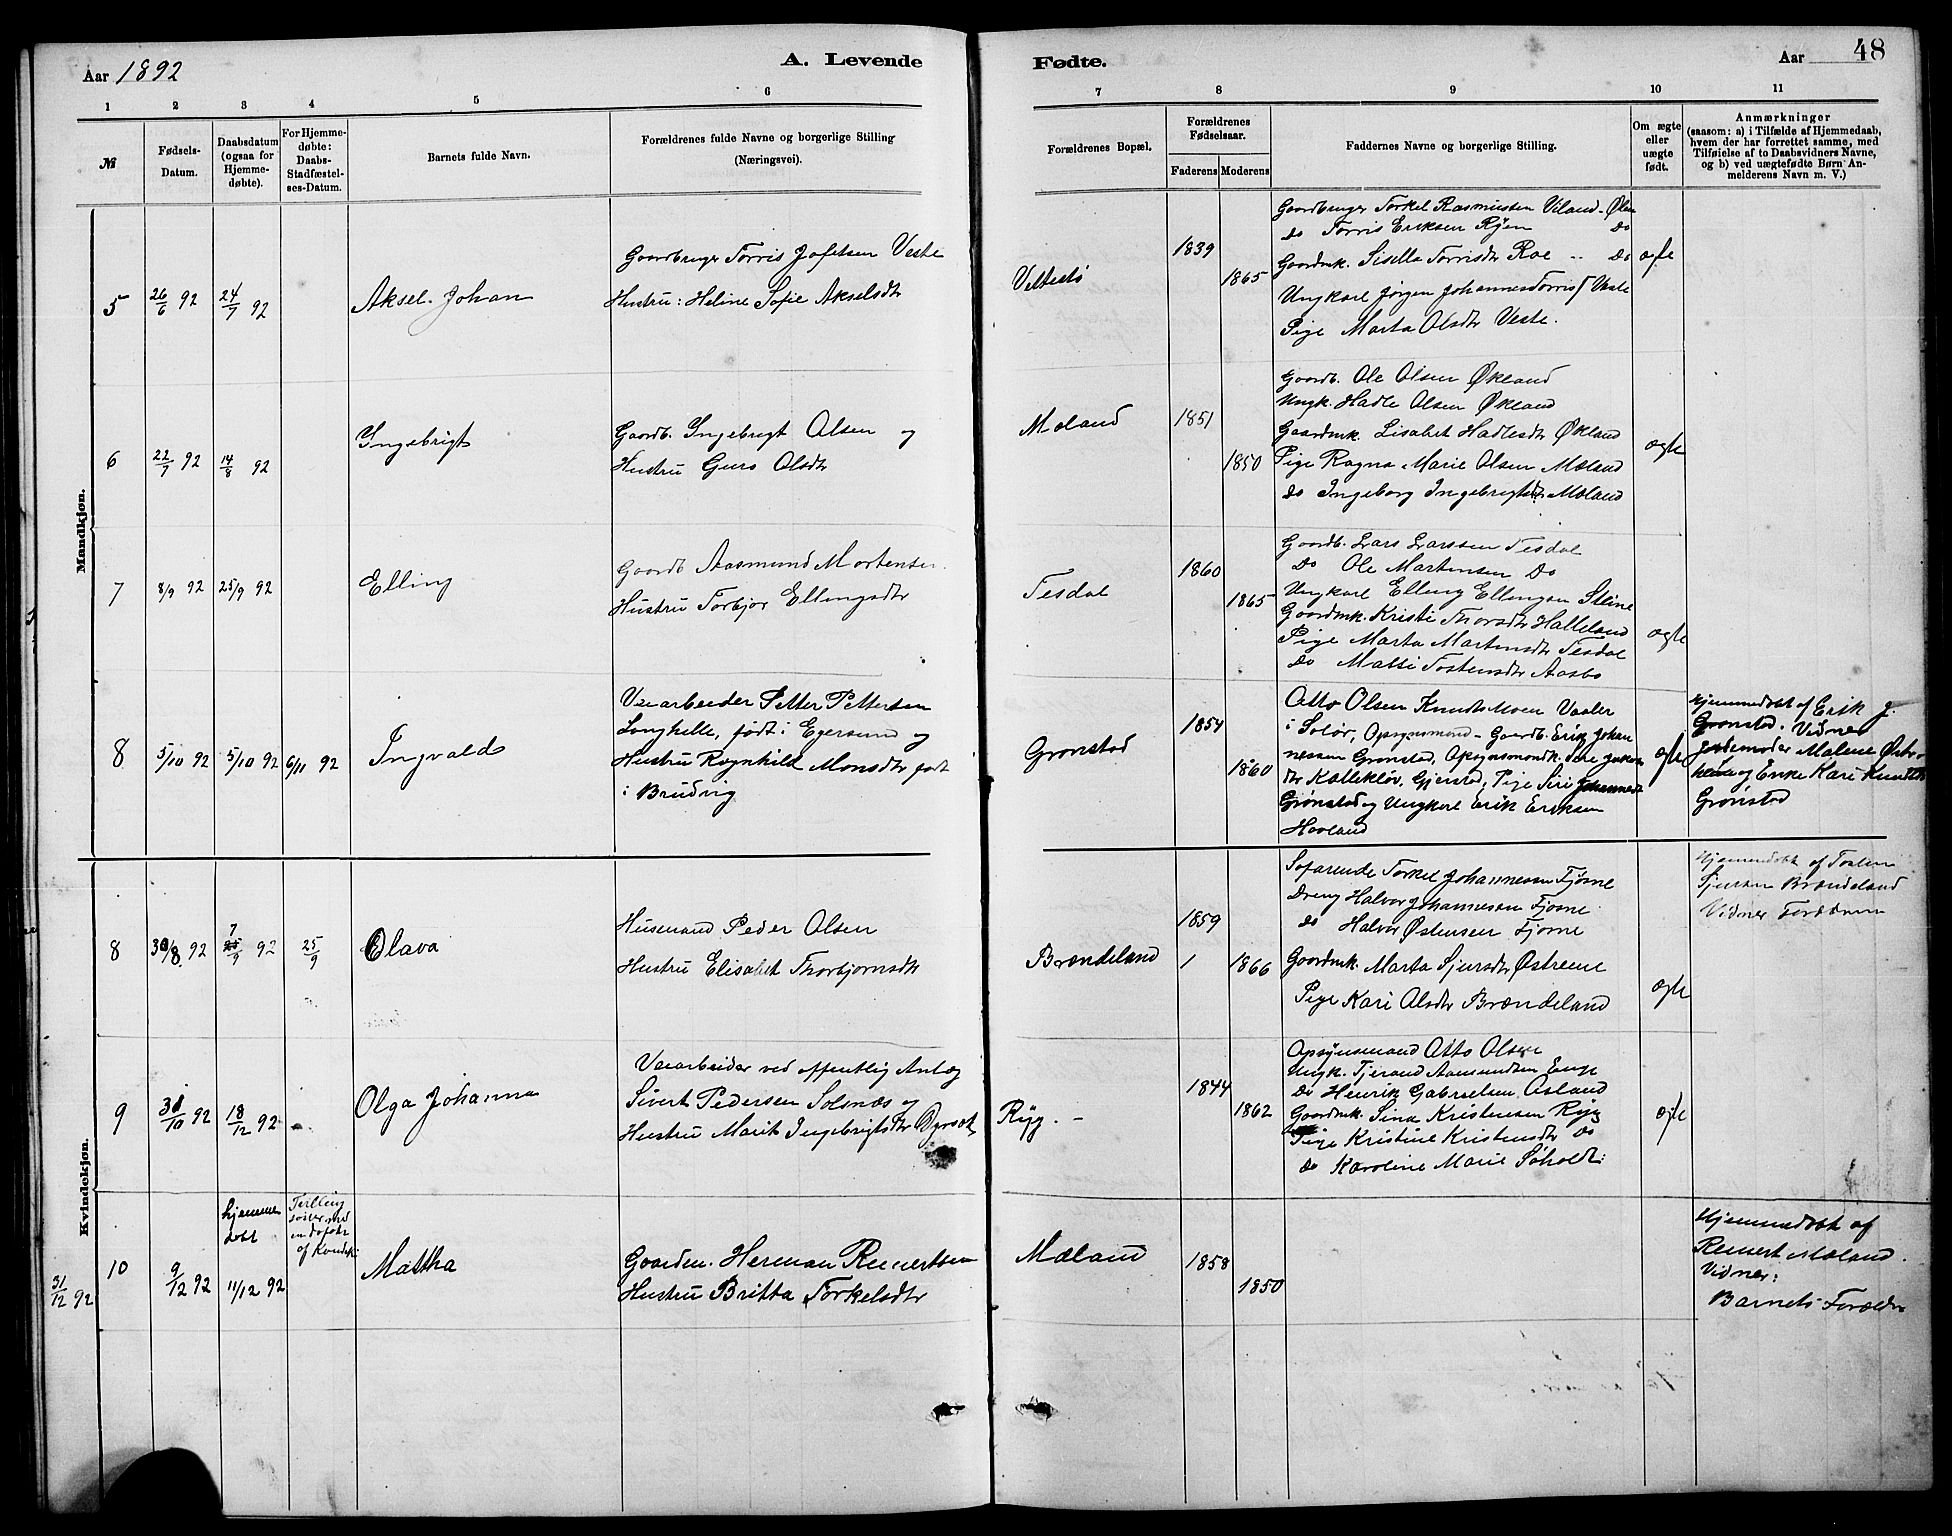 Aar 1892
A. Levende
Fødte.
Aar
48
1 2 3 4 5 6 7 8 9 10 11
№
Fødsels-
Datum.
Daabsdatum
(ogsaa for
Hjemme-
døbte).
For Hjemme-
døbte:
Daabs-
Stadfæstel-
ses-Datum.
Barnets fulde Navn.
Forældrenes fulde Navne og borgerlige Stilling
(Næringsvei).
Forældrenes Bopæl.
Forældrenes
Fødselsaar.
Faderens Moderens
Faddernes Navne og borgerlige Stilling.
Om ægte
eller
uægte
født.
Anmærkninger
(saasom: a) i Tilfælde af Hjemmedaab,
hvem der har forrettet samme, med
Tilføielse af to Daabsvidners Navne,
og b) ved uægtefødte Børn An-
melderens Navn m. V.)
Mandkjøn.
5
26/6 92
24/7 92
Aksel Johan
Gaardbruger Torris Jofetsen Veste
Hustru: Heline Sofie Akselsdtr
Vettestø
1839
1865
Gaardbruger Torkel Rasmussen Viland - Ølen
do Torris Eriksen Røen do
Gaardmk. Sisella Torrisdtr Roe " do
Ungkarl Jørgen Johannes Torris Veste
Pige Marta Olsdtr Veste.
ægte
6
22/7 92
14/8 92
Ingebrigt
Gaardb. Ingebregt Olsen og
Hustru Guro Olsdtr
Mæland
1851
1850
Gaardb. Ole Olsen Økland
Ungk. Hadle Olsen Økland
Gaardmk. Lisabet Hadlesdtr Økland
Pige Ragna Marie Olsen Mæland
do Ingeborg Ingebrigtsdtr Mæland
ægte
7
8/9 92
25/9 92
Elling
Gaardb Aasmund Mortensen
Hustru Torbjør Ellingsdtr
Tesdal
1860
1865
Gaardb. Lars Larssen Tesdal
do Ole Martinsen do
Ungkarl Elling Ellingsen Stene
Gaardmk. Kristi Thorsdtr Halleland
Pige Marta Martinsdtr Tesdal
do Matti Tostensdtr Aasbø
ægte
8
5/10 92
5/10 92
6/11 92
Ingvald
Veiarbeider Petter Pettersen
Langhelle, født i Egersund og
Hustru Ragnhild Monsdtr født
i Brudvig
Grønstad
1854
1860
Otto Olsen Knudsmoen Vaaler
i Solør, Opsynsmand - Gaardb. Erik Johan-
nessen Grønstad, Opsynsmandk.
dtr Kallekløv, Gjerstad, Pige Siri Johannesdtr
Grønstad og Ungkarl Erik Eriksen
Havland
ægte
Hjemmedøbt af Erik J.
Grønstad. Vidner
Jordemoder Malene
og Enke Kari Knudsdtr
Grønstad
Kvindekjøn.
8
30/8 92
7
25/9 92
25/9
Olava
Husmand Peder Olsen
Hustru Elisabet Thorbjørnsdtr
Brændeland
1859
1866
Søfarende Torkel Johannesen Fjøsne
Dreng Halvor Johannesen Fjøsne
do Halvor Østensen Fjøsne
Gaardmk. Marta Sjursdtr Østreme
Pige Kari Olsdtr Brændeland
ægte
Hjemmedøbt af Tosten
Sjursen Brændeland
Vidner Forældrene
9
31/10 92
18/12 92
Olga Johanna
Veiarbeider ved offentlig Anlæg
Sivert Pedersen Solsnæs og
Hustru Marit Ingebrigtsdtr
Ryg. -
1844
1862
Opsynsmand Otto Olsen
Ungk. Tjerand Aamundsen Enge
do Henrik Gabrielsen Øsland
Gaardmk. Sina Kristensen Ryg
Pige Kristine Kristensdtr do
do Karoline Marie Søholdt
ægte
31/12 92
10
9/12 92
hjemme
døbt
11/12 92
Tvilling
Mattha
Gaardm. Herman Reinertsen
Hustru Britta Torkelsdtr
Mæland
1858
1850
Hjemmedøbt af
Reinert Mæland.
Vidner:
Barnets Forældre